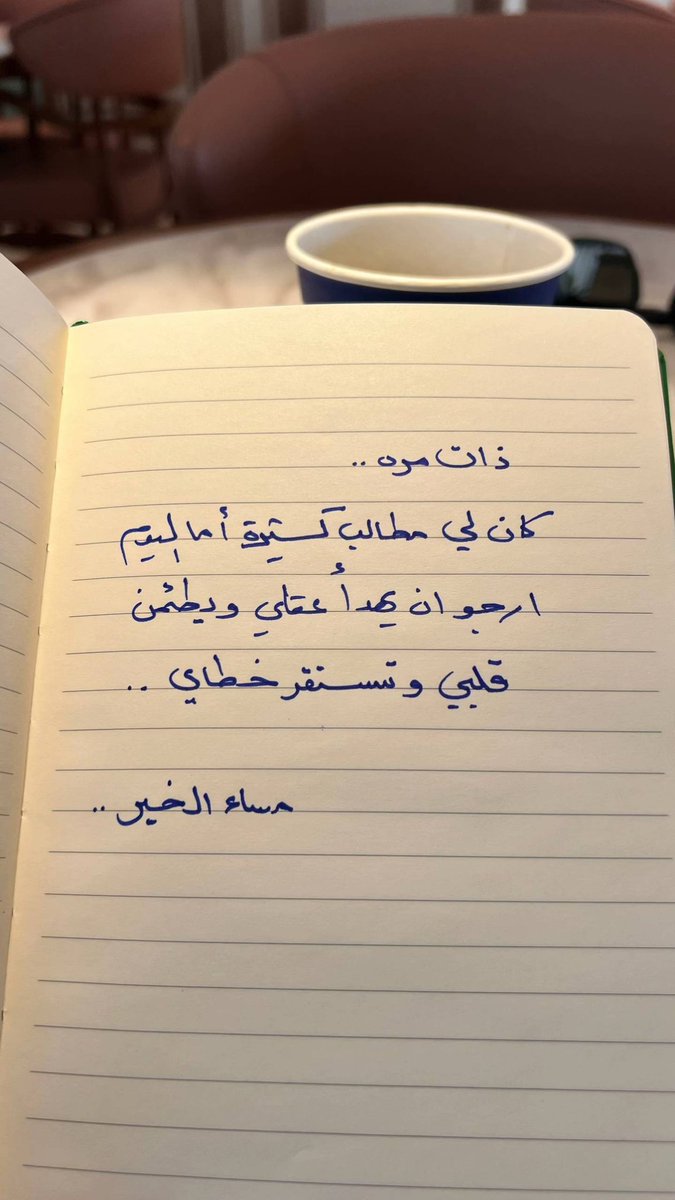 ذات مره ..
كان لي مطالب كثيرة أما اليوم
ارجو ان يهدأ عقلي ويطئمن
قلبي وتستقر خطاي ..
مساء الخير ..